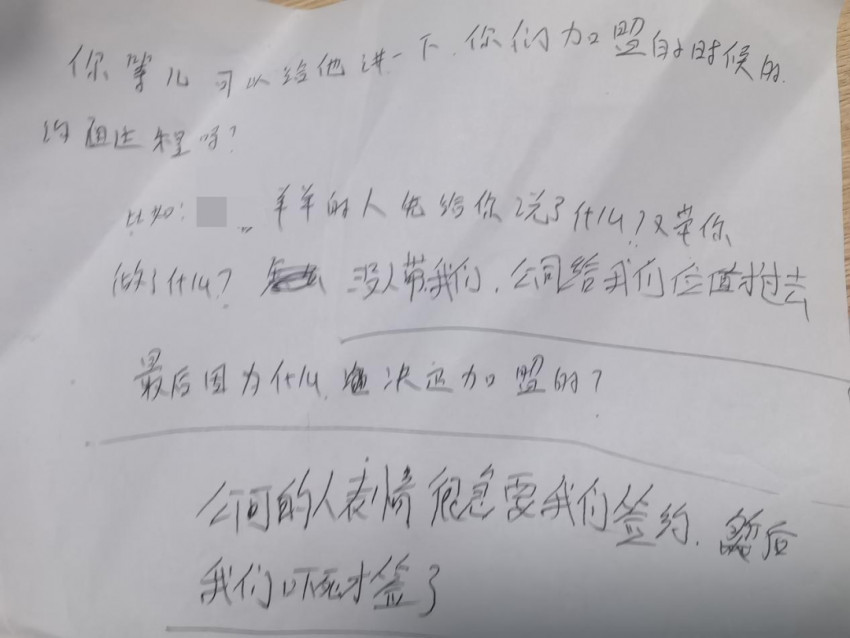 你 可以给他讲一下,你们加盟的时候的
的 程吗?
比如: 羊羊的人先给你说了什么?又带你
做了什么? 没人带我们,公司给我们位置才过去
最后因为什么,决定加盟的?
公司的人表情很急要我们签约,然后
我们吓死才签了